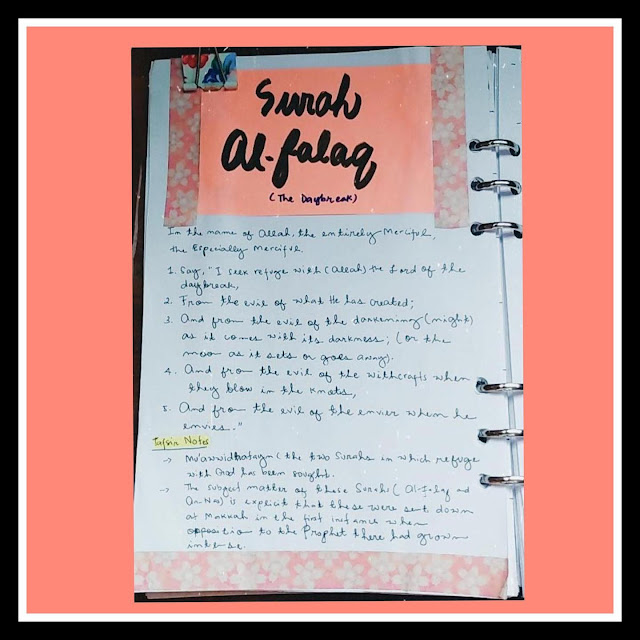 Surah
Al-falaq
(The Daybreak)
In the name of Allah, the entirely Merciful,
the Especially Merciful.
1. Say, "I seek refuge with (Allah) the Lord of the
daybreak,
2. From the evil of what He has created;
3. And from the evil of the darkening (night)
as it comes with its darkness; (or the
moon as it sets or goes away).
4. And from the evil of the withcrafts when
they blow in the knots,
5. And from the evil of the envier when he
envies."
Tafsir Notes
→ Mu'awwidhatayn (the two Surahs in which refuge
with God has been sought.
→ The subject matter of these Surah (Al-Falaq and
An-Nas) is explicit that these were set down
at Makkah in the first instance when
opposition to the Prophet there had grown
intense.